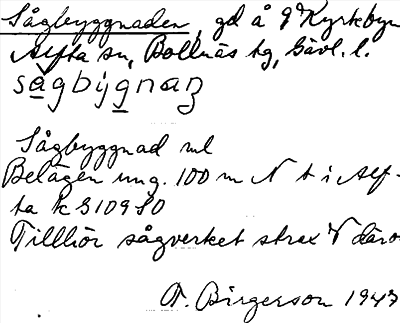 Sågbyggnaden, gd å 9⁹ Kyrkbyn
Alfta sn, Bollnäs tg, Gävl. l.
sågbygnaʒ
Sågbyggnad ml
Belägen ung. 100 m N t i Alf-
ta k G 109 S0
Tillhör sågverket strax V däro
F. Birgerson 1943